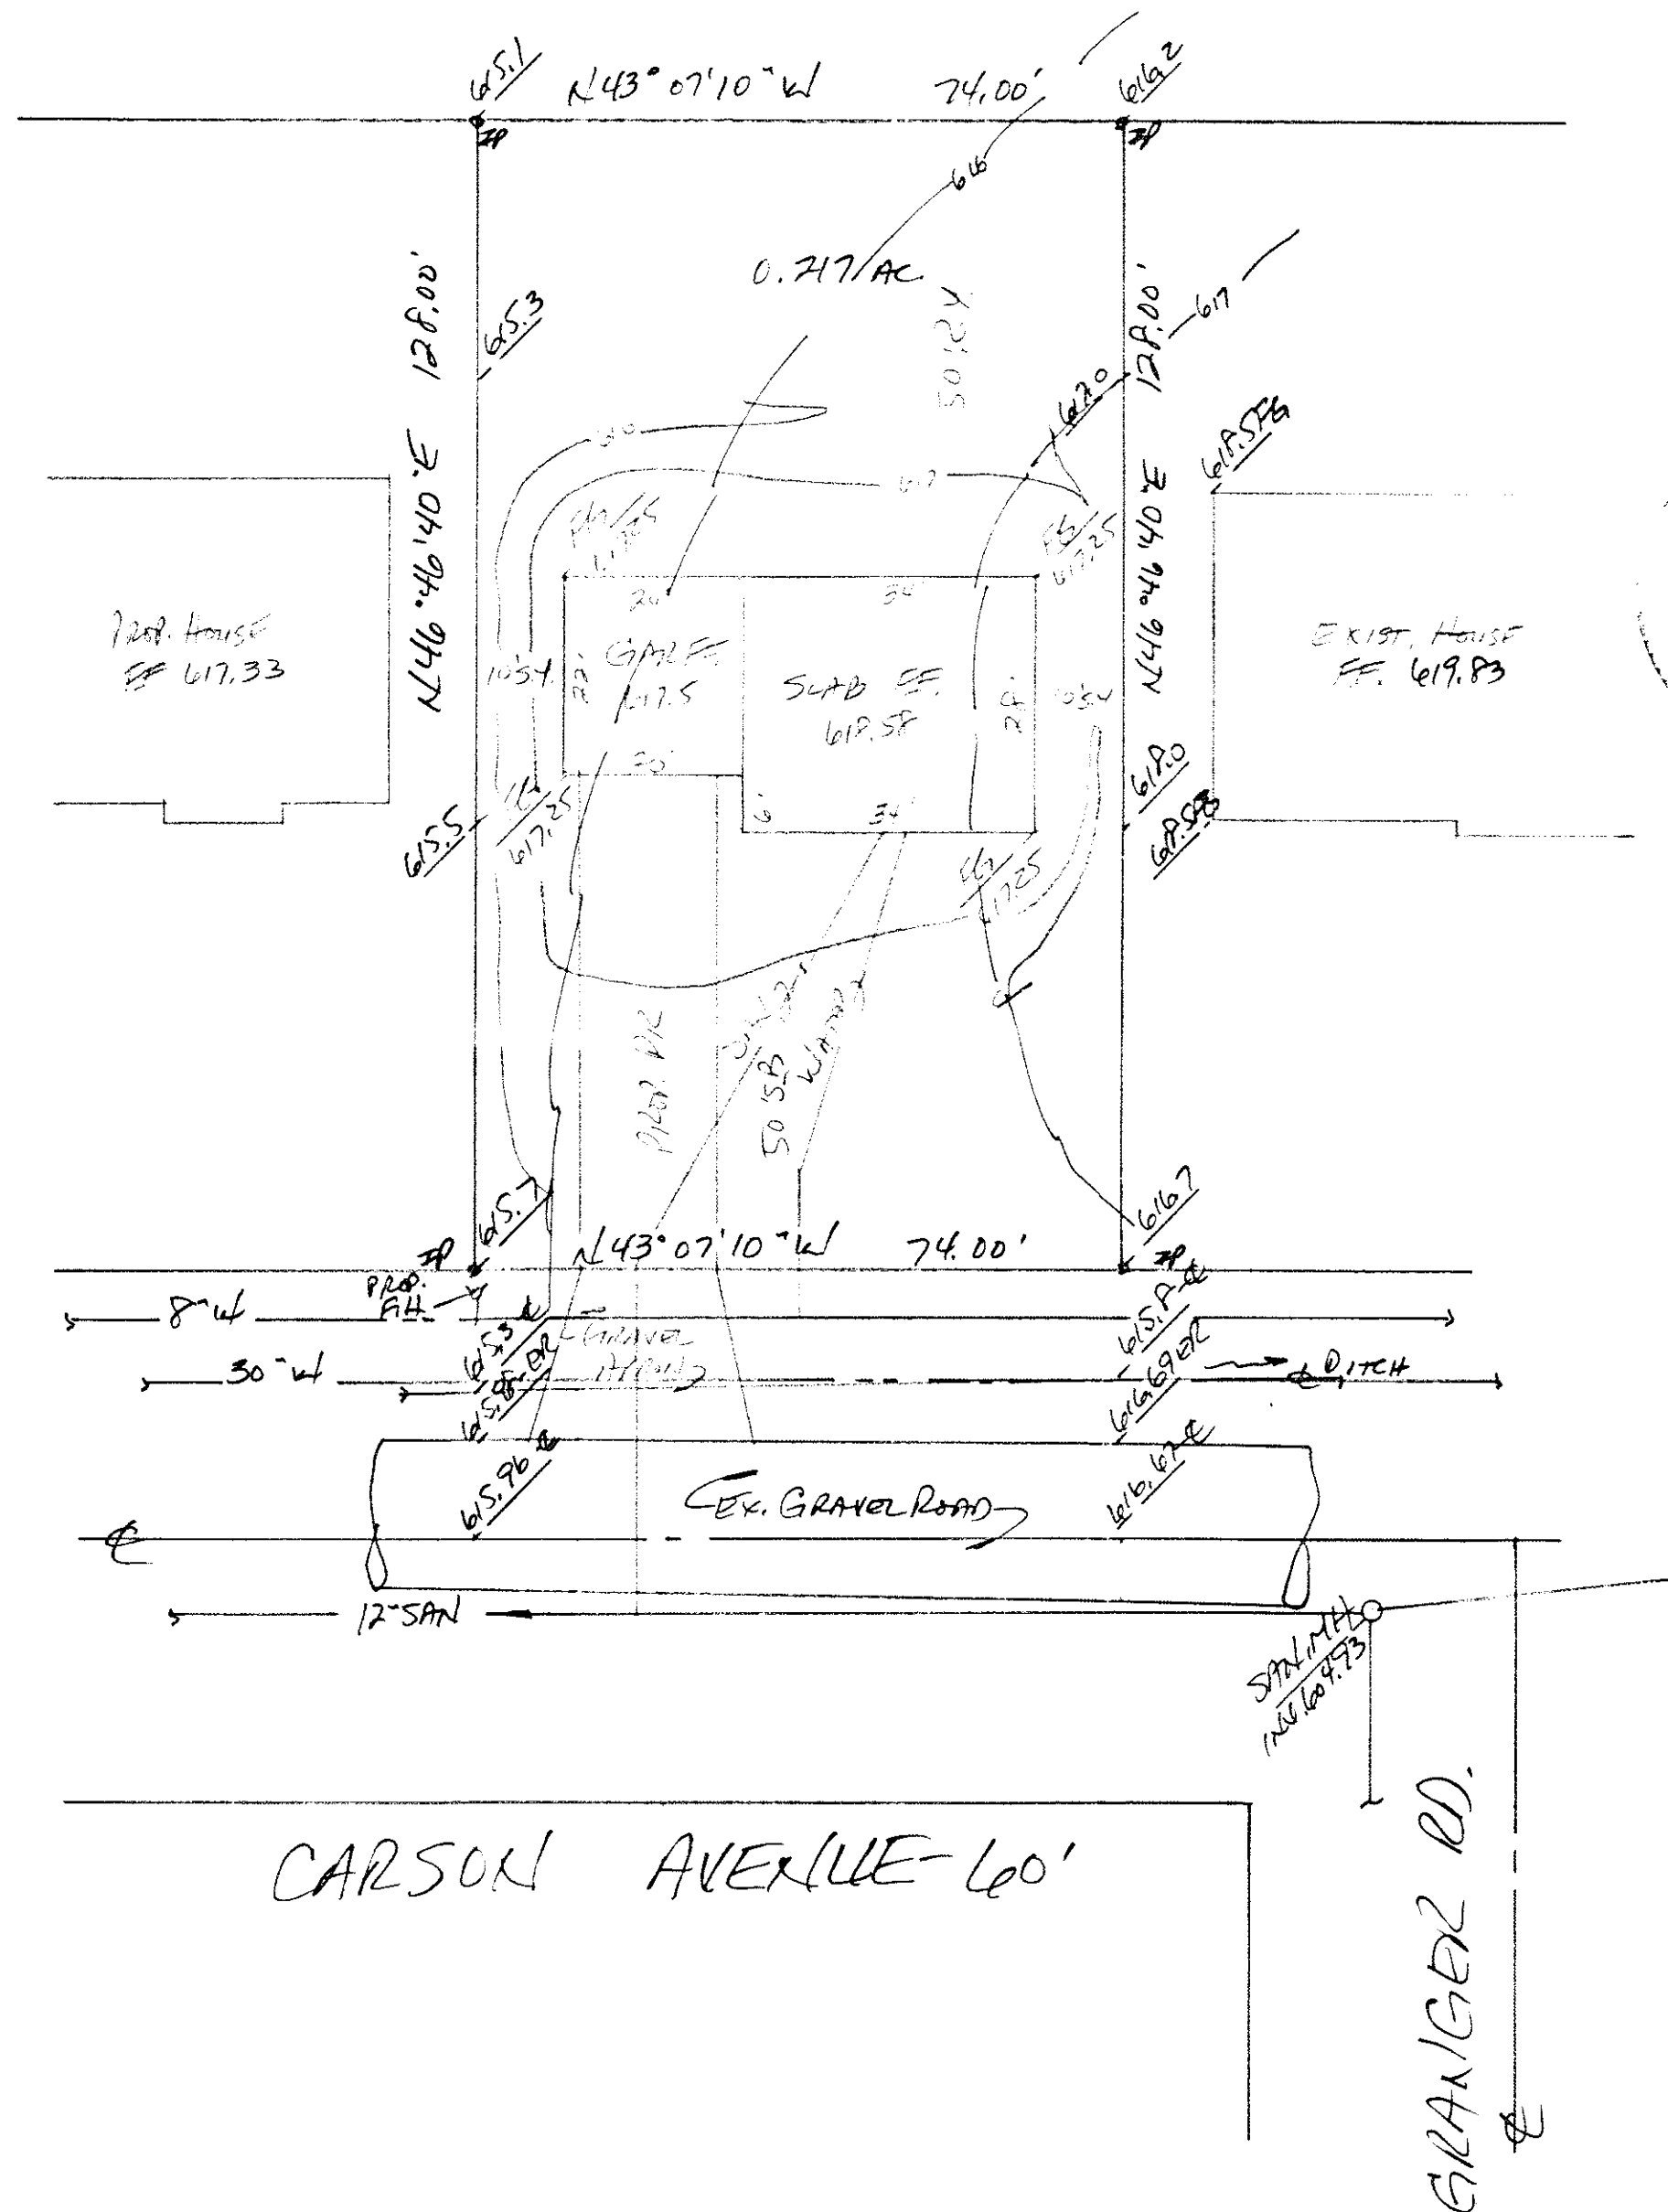 615.1
N43°07'10"W 74.00'
616.2
IP
IP
616
0.217 AC.
128.00'
N46°46'40"E
615.3
128.00'
N46°46'40"E
617
617.0
618.5FG
617
FG
617.25
PROP. HOUSE
FF 617.33
EXIST. HOUSE
FF. 619.83
20'
34'
10'SY.
22'
GAR FF.
617.5
SLAB FF.
618.58
28'
10'SY
20'
6'
34'
615.5
617.25
618.0
618.5FG
617.25
PROP. DR
50'SB
WATER
615.7
616.7
N43°07'10"W 74.00'
IP
IP
PROP.
F.H.
8"W
615.3 ℄
615.8 ℄
GRAVEL
APRON
30"W
616.69 ER
℄ DITCH
615.96 ℄
616.67 ℄
EX. GRAVEL ROAD
℄
12"SAN
SAN. MH
INV. 604.93
CARSON AVENUE-60'
GRANGER RD.
℄